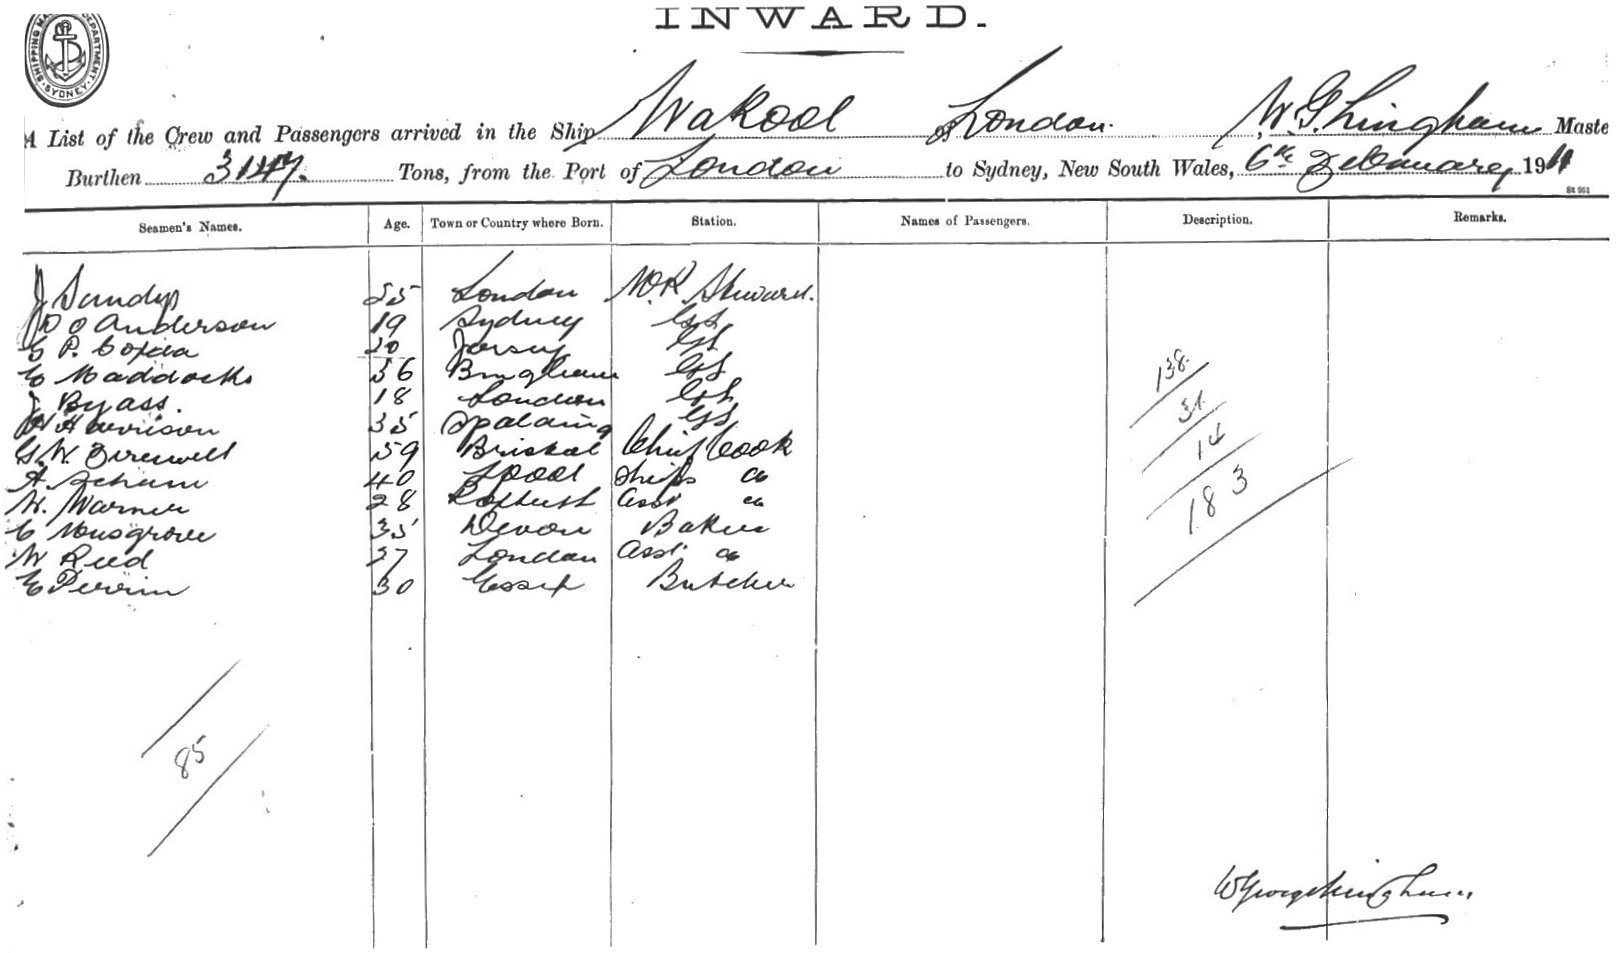 INWARD.
SHIPPING MA DEPARTMENT SYDNEY
A List of the Crew and Passengers arrived in the Ship Wakool of London. W. G. Lingham Maste
Burthen 3147. Tons, from the Port of London to Sydney, New South Wales, 6th February 1911
St 951
Seamen's Names. Age. Town or Country where Born. Station. Names of Passengers. Description. Remarks.
J Sandys London Steward.
Anderson 19 Sydney
P. Jersey
C Maddocks 36
J Byass. 18 London
H Harrison 35 Spalding
G. W. 59 Bristol Chief Cook
A. 40 Lpool Ships
W. Warner 28 Asst
C Musgrove 35 Devon Baker
W Reed London Asst
E Perrin 30 Essex Butcher
138
31
14
183
85
W George Lingham